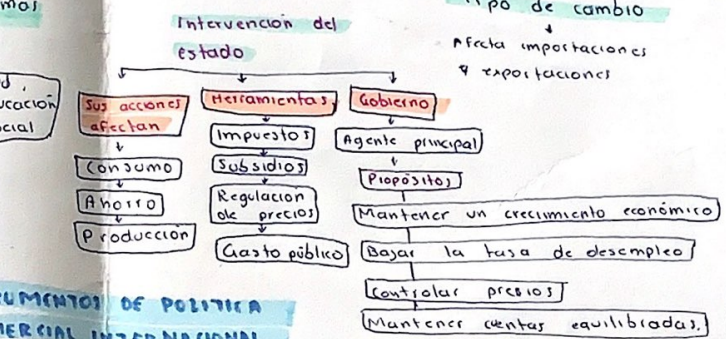 mos
Intervención del
estado
po de cambio
Afecta importaciones
y exportaciones
d,
ucación
cial
Sus acciones
afectan
Consumo
Ahorro
Producción
Herramientas
Impuestos
Subsidios
Regulacion
de precios
Gasto público
Gobierno
Agente principal
Propósitos
Mantener un crecimiento económico
Bajar la tasa de desempleo
Controlar precios
Mantener cuentas equilibradas.
UMENTOS DE POLITICA
MERCIAL INTERNACIONAL